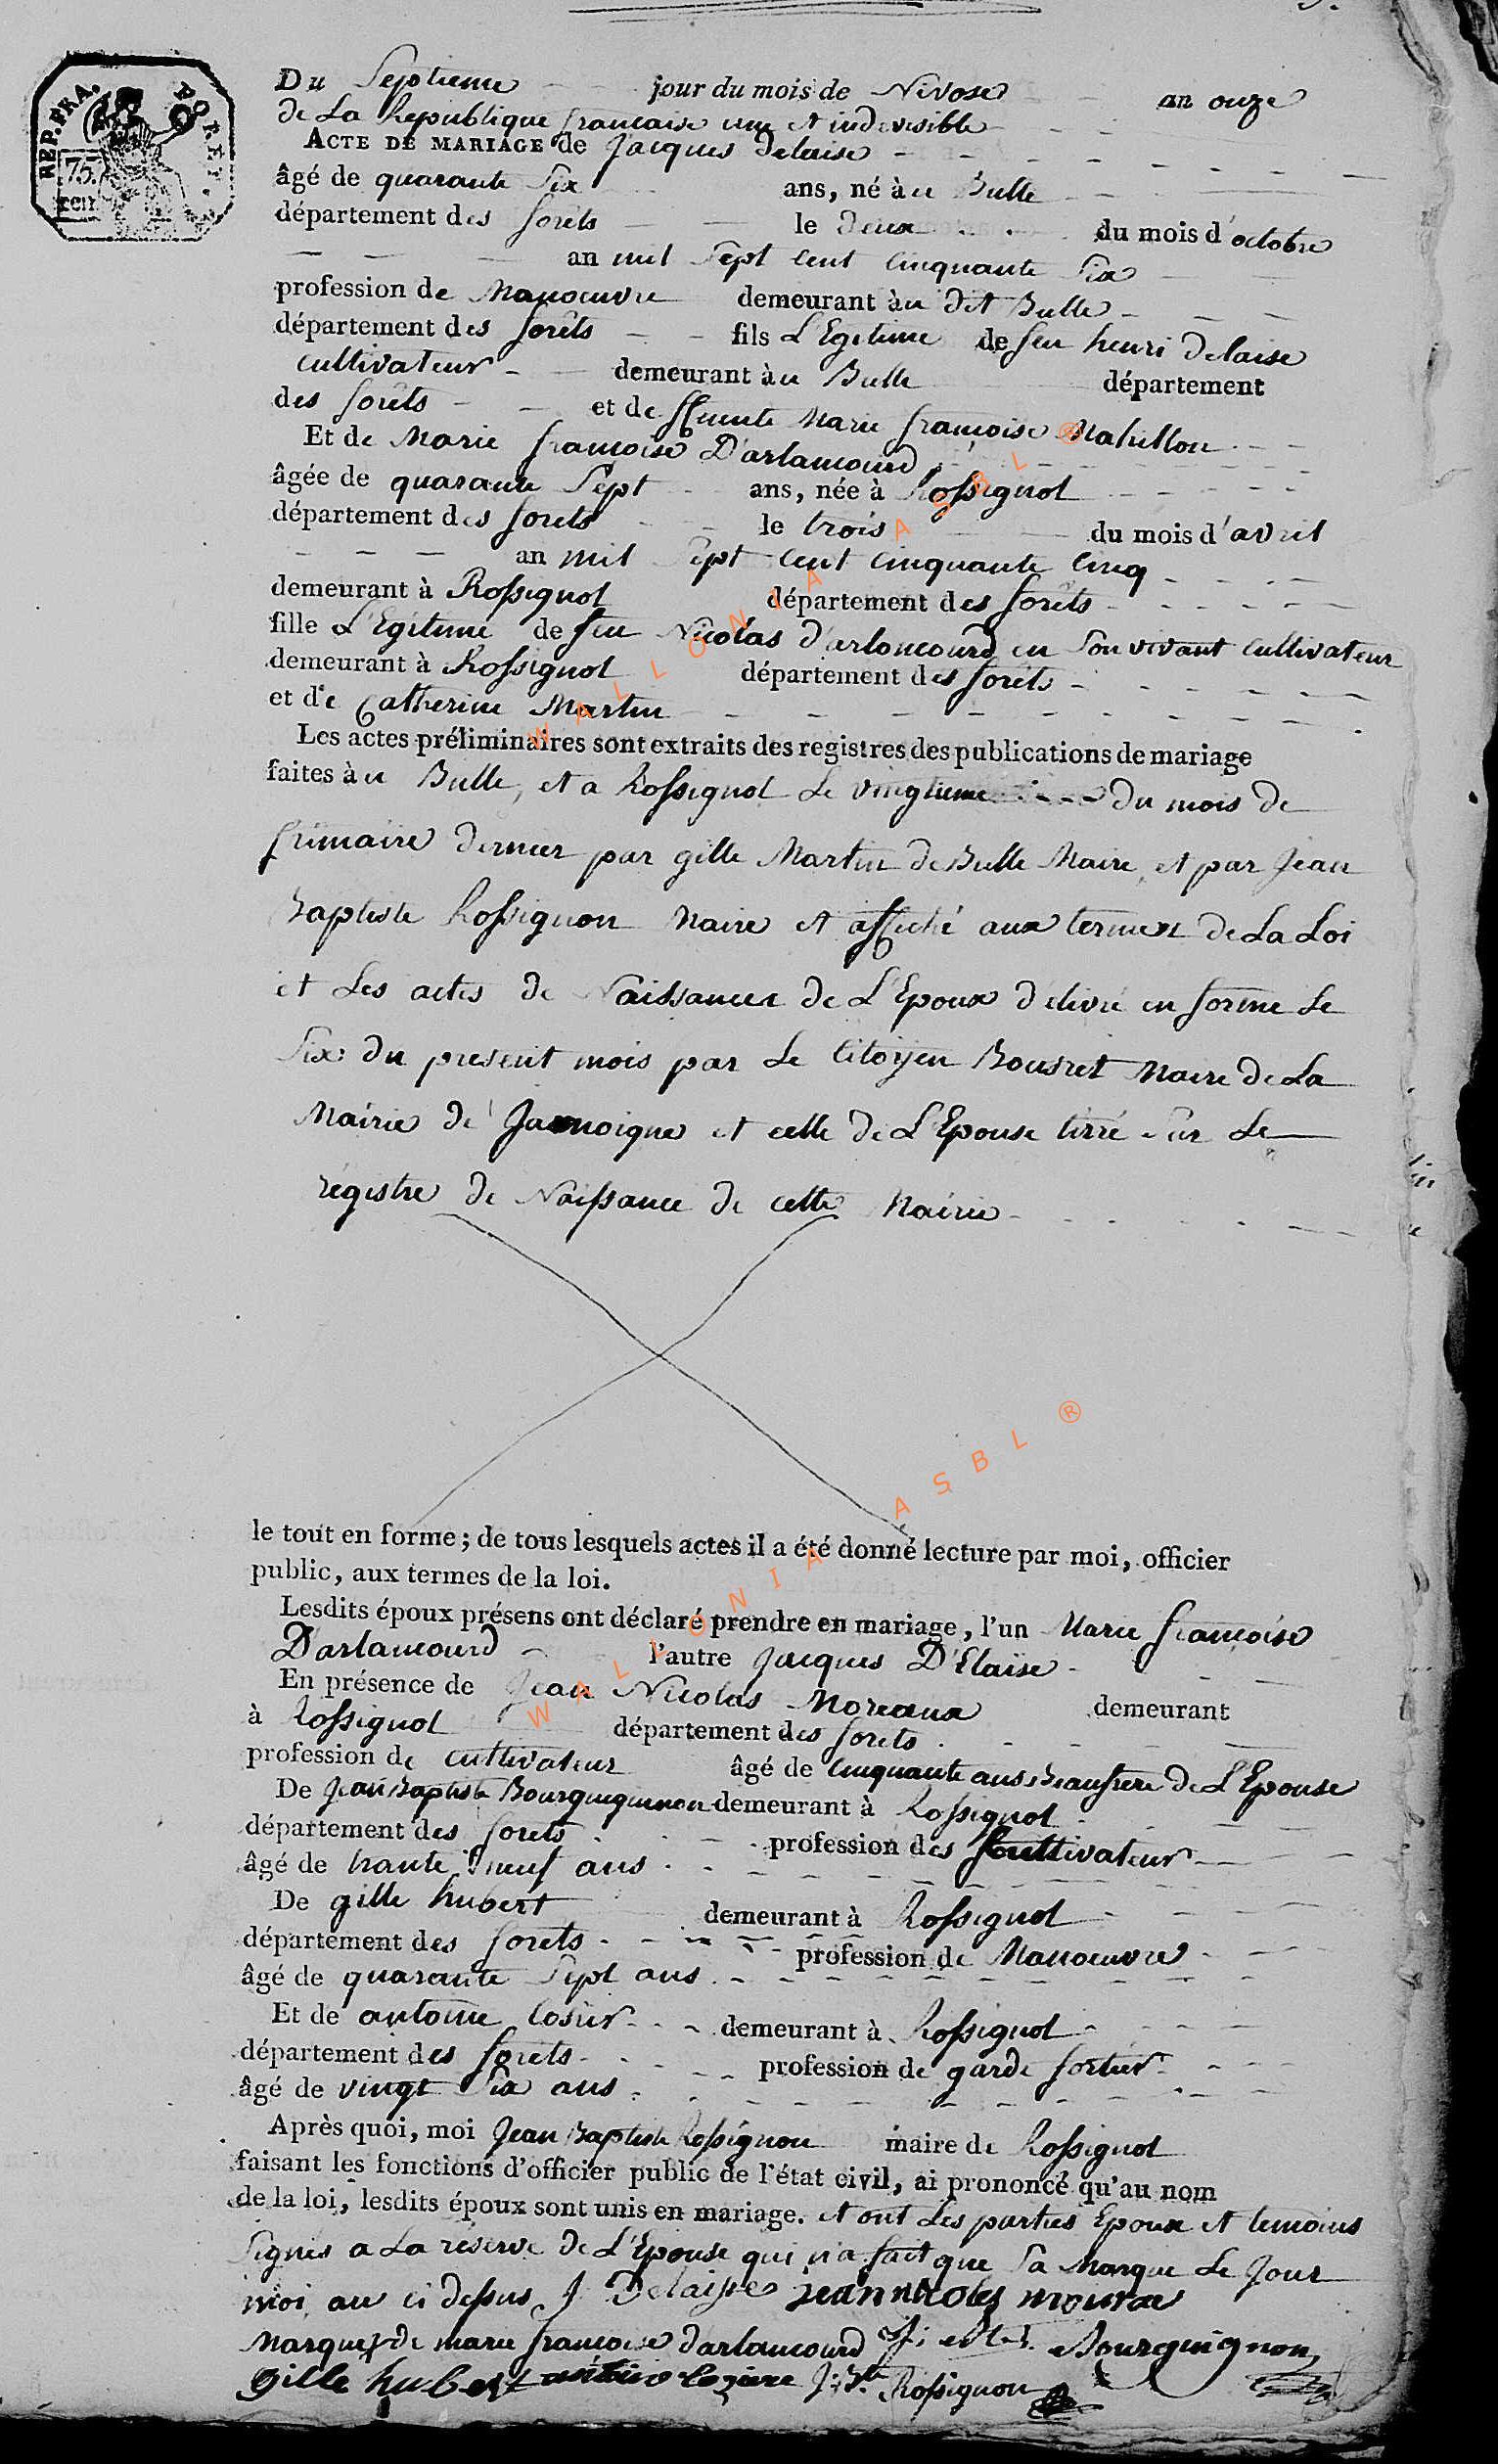 REP. FRA.
75.
cen.
Du Septieme jour du mois de Nivose an onze
de La Republique francaise une et indivisible
ACTE DE MARIAGE de Jacques Delaise
âgé de quarante Six ans, né àu Bulle
département des forêts le Deux du mois d'octobre
an mil Sept cent cinquante Six
profession de Manoeuvre demeurant àu dit Bulle
département des forêts fils L'Egitime de feu henri Delaise
cultivateur demeurant àu Bulle département
des forêts et de Marie françoise Mahillon
Et de Marie francoise D'arlancourd
âgée de quarante Sept ans, née à Rossignol
département des forets le trois du mois d'avril
an mil Sept cent cinquante Cinq
demeurant à Rossignol département des forêts
fille L'Egitime de feu Nicolas d'arloncourd en Son vivant cultivateur
demeurant à Rossignol département des forêts
et de Catherine Martin
Les actes préliminaires sont extraits des registres des publications de mariage
faites àu Bulle, et a Rossignol Le vingtieme du mois de
frimaire dernier par gille Martin de Bulle Maire, et par Jean
Baptiste Rossignon Maire et affiché aux termes de La Loi
et Les actes de Naissances de L'Epoux délivré en forme Le
Six du present mois par Le Citoyen Maire de La
Mairie de Jamoigne et celle de L'Epouse tirré Sur Le
régistre de Naissance de cette Mairie
le tout en forme; de tous lesquels actes il a été donné lecture par moi, officier
public, aux termes de la loi.
Lesdits époux présens ont déclaré prendre en mariage, l'un Marie françoise
D'arlancourd l'autre Jacques D'Elaise
En présence de Jean Nicolas Moreaux demeurant
à Rossignol département des forets
profession de cultivateur âgé de cinquante ans Beaufrere de L'Epouse
De Jean Baptiste Bourguignon demeurant à Rossignol
département des forets profession des cultivateur
âgé de trante neuf ans
De gille hubert demeurant à Rossignol
département des forets profession de Manoeuvre
âgé de quarante Sept ans
Et de antoine demeurant à Rossignol
département des forets profession de garde
âgé de vingt Six ans
Après quoi, moi Jean Baptiste Rossignon maire de Rossignol
faisant les fonctions d'officier public de l'état civil, ai prononcé qu'au nom
de la loi, lesdits époux sont unis en mariage. et ont Les parties Epoux et temoins
Signés a La réserve de L'Epouse qui n'a fait que Sa Marque Le Jour
moi au ci dessus J Delaisse jean nicolas
Marque de marie françoise darlancourd Bourguignon
gille hubert J: Bte Rossignon
WALLONIA ASBL ®
WALLONIA ASBL ®